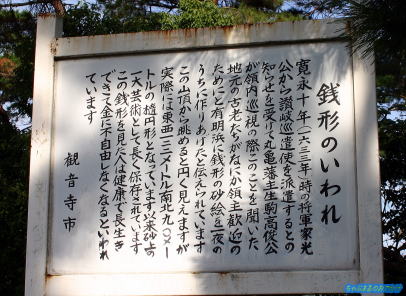 銭形のいわれ
寛永十年(一六三三年)時の将軍家光
公から讃岐巡遣使を派遣するとの
知らせを受けて丸亀藩主生駒高俊公
が領内巡視の際このことを聞いた、
地元の古老たちがなにか領主歓迎の
ためにと有明浜に銭形の砂絵を一夜の
うちに作りあげたと伝えられています
この山頂から眺めると円く見えますが
実際には東西一二二メートル南北九〇メー
トルの楕円形となっています以来砂上の
一大芸術として長く保存されています
この銭形を見た人は健康で長生き
できて金に不自由しなくなるといわれ
ています
観音寺市